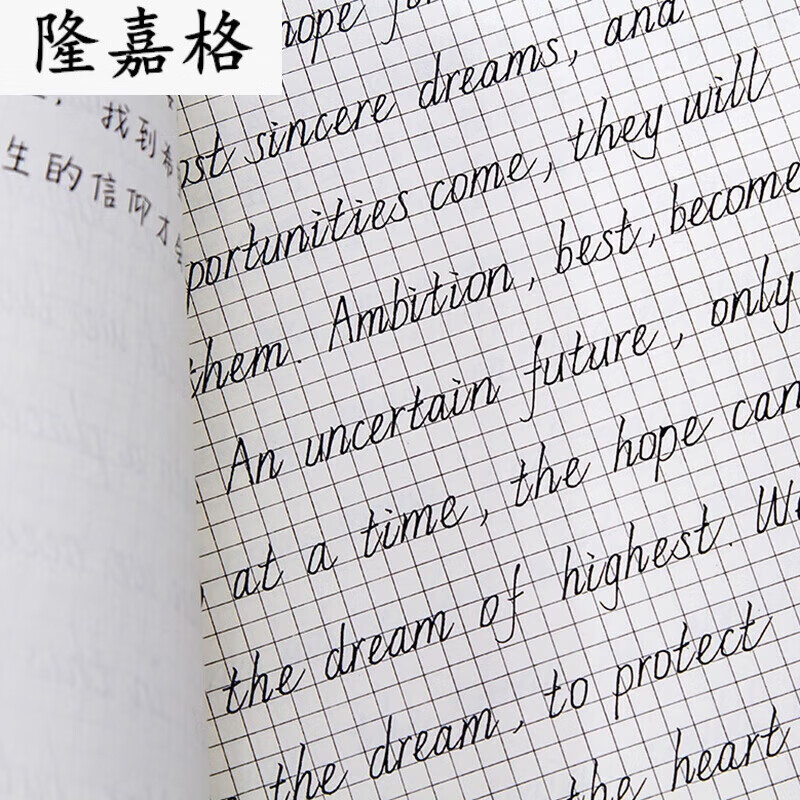 隆嘉格
找到希
生的信仰才
hope
sincere dreams, and
come, they will
them. Ambition, best, become
An uncertain future, only
at a time, the hope can
the dream of highest.
the dream, to protect
the heart